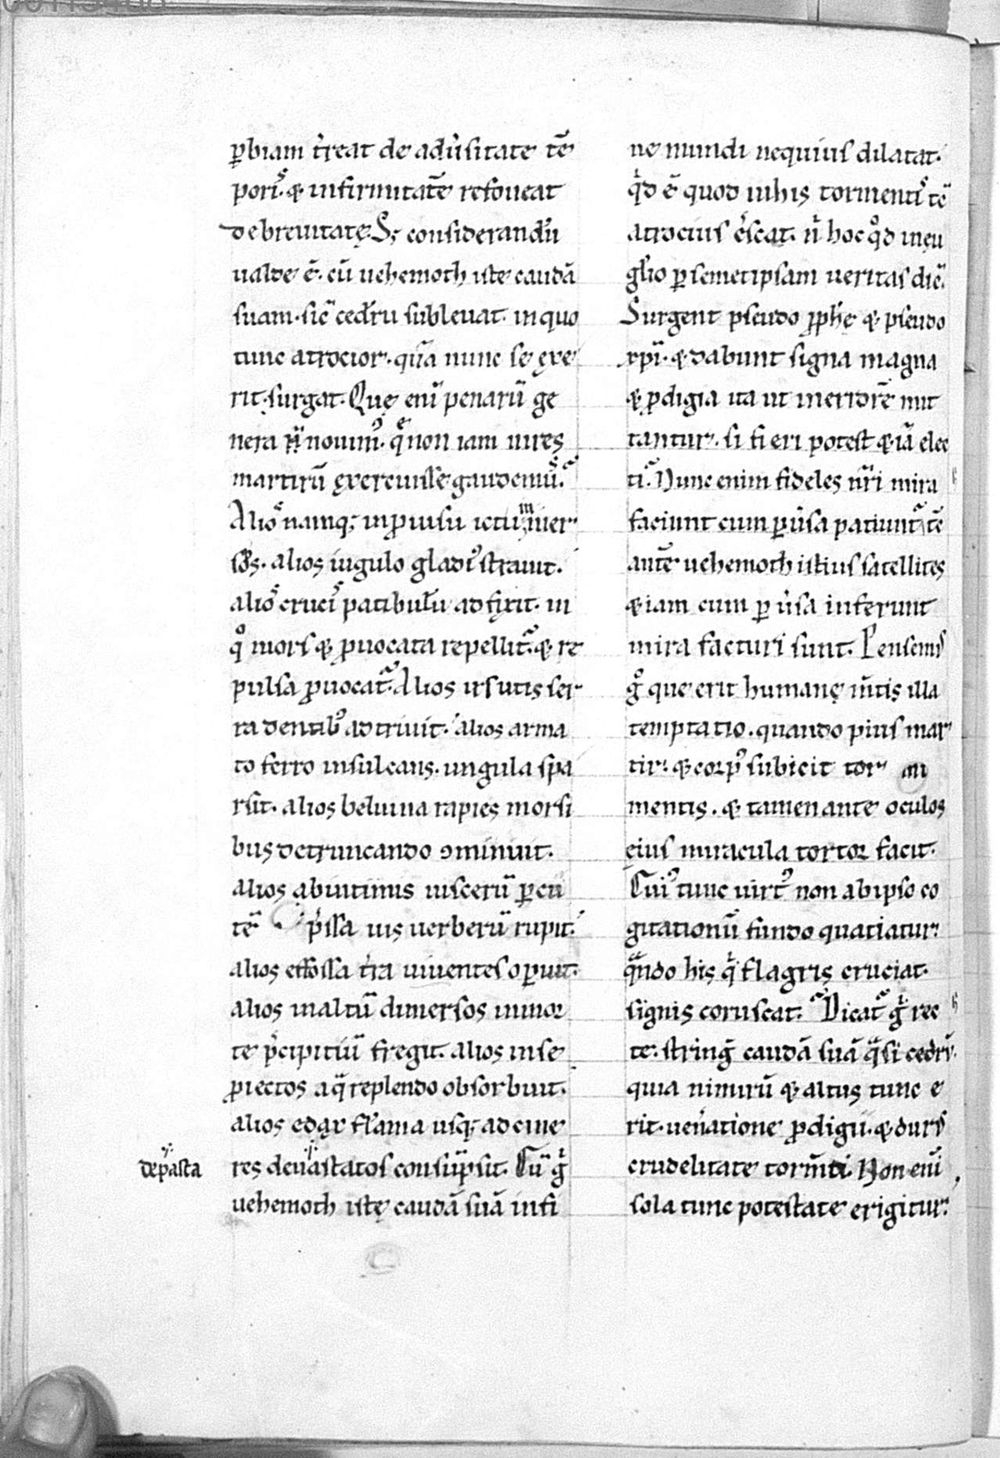 ꝑbiam t̾reat de adu̾sitate tē
porͥ. ⁊ infirmitatē refoueat
de breuitatę. Sꝫ considerandū
ualde ē. cū uehemoth iste caudā
suam. sic̄ cedrū subleuat. in quo
tunc atrocior. quā nunc se exe
rit. surgat. Quę enī penarū ge
nera n̄ nouimꝰ. q̄ non iam uires
martirū exercuisse gaudemꝰ.
Alios namqꝫ inprouisu ictu inmer
sꝰ. alios iugulo gladiꝰ strauit.
alios crucis patibulū adfixit. in
qͦ mors ⁊ ꝓuocata repellit᷑. ⁊ re
pulsa ꝓuocat᷑. Alios irsutis ser
ra dentibꝰ adtriuit. alios arma
to ferro insulcans. ungula spa
rsit. alios beluina rapies morsi
bus detruncando ꝯminuit.
alios ab intimis uiscerū ꝑcu
tē p̄ssa uis uerberū rupit.
alios effossa t̾ra uiuentes operuit.
alios in altū dimersos inmor
te p̄cipitiū fregit. alios in se
ꝓiectos aq̄ replendo obsorbuit.
alios edax flāma usqꝫ ad cine
depasta
res deuastatos consūpsit. Cū gͦ
uehemoth istę caudā suā infi
ne mundi nequius dilatat.
qͥd ē quod in his tormentͥ tc̄
atrocius c̾scat. nͥ hoc qͦd in eu
gl̄io ꝑ semetipsam ueritas dic̄.
Surgent pseudo ꝓph̄ę ⁊ pseudo
xpī. ⁊ dabunt signa magna
⁊ ꝓdigia ita ut in errorē mit
tantur. si fieri potest ⁊iā elec
ti. Nunc enim fideles nr̄i mira
faciunt cum ꝑu̾sa patiunt᷑. tc̄
autē uehemoth istius satellites
⁊iam cum ꝑu̾sa inferunt
mira facturi sunt. Pensemꝰ
gͦ que erit humanę m̄tis illa
temptatio. quando pius mar
tir. ⁊ corpꝰ subicit tor
mentis. ⁊ tamen ante oculos
eius miracula tortor facit.
Cuiꝰ tunc uirtꝰ non ab ipso co
gitationū fundo quatiatur.
qͣndo his qͥ flagris cruciat.
signis coruscat. Dicat᷑ gͦ rec
te. string̾ caudā suā qͣsi cedrꝰ.
quia nimirū ⁊ altus tunc e
rit. uen̾atione ꝓdigii. ⁊ durꝰ
crudelitate torm̄ti. Non enī
sola tunc potestate erigitur.